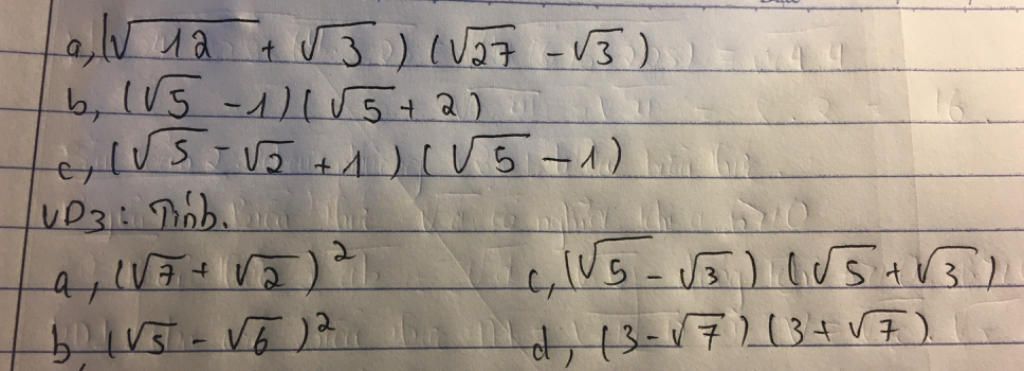 a, (√12 + √3) (√27 - √3)
b, (√5 - 1) (√5 + 2)
c, (√5 - √2 + 1) (√5 - 1)
VD3: Tính.
a, (√7 + √2)² c, (√5 - √3) (√5 + √3)
b, (√5 - √6)² d, (3 - √7) (3 + √7)